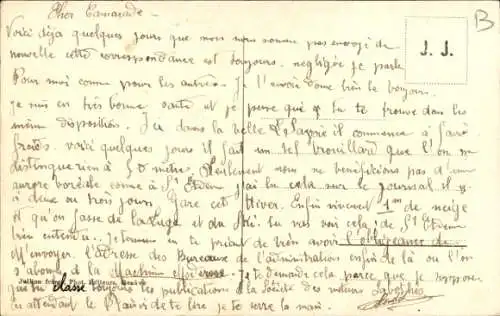 Cher Camarade
Voici déja quelques jours que nous nous somme pas envoyé de
nouvelle cette correspondance est toujours negligée je parle
Pour moi comme pour les autres. Je t'envoi donc bien le bonjour.
Je suis en très bonne santé et je pense que tu te trouve dans les
même disposition. Ici dans la belle Savoie il commence à faire
froids. voici quelques jours il fait un tel brouillard que l'on ne
distingue rien à 50 mètre. Seulement nous ne bénéficions pas d'une
aurore boréale comme à St Etienne j'ai lu cela sur le journal il y
à deux ou trois jours. Gare cet Hiver. Enfin vivement 1m de neige
qu'on fasse de la Luge et du Ski. tu vas voir cela; de St Etienne
bien entendu. Je termine en te priant de bien avoir l'obligeance de
M'envoyer l'adresse des Bureaux de l'administration enfin de là ou l'on
s'abonne à la Machine Moderne. Je te demande cela parce que je suppose
que tu classe toujours les publications à la Société des
en attendant le Plaisir de te lire je te serre la main.
J. J.
B
Jullien frères, Phot. Editeurs, Genève